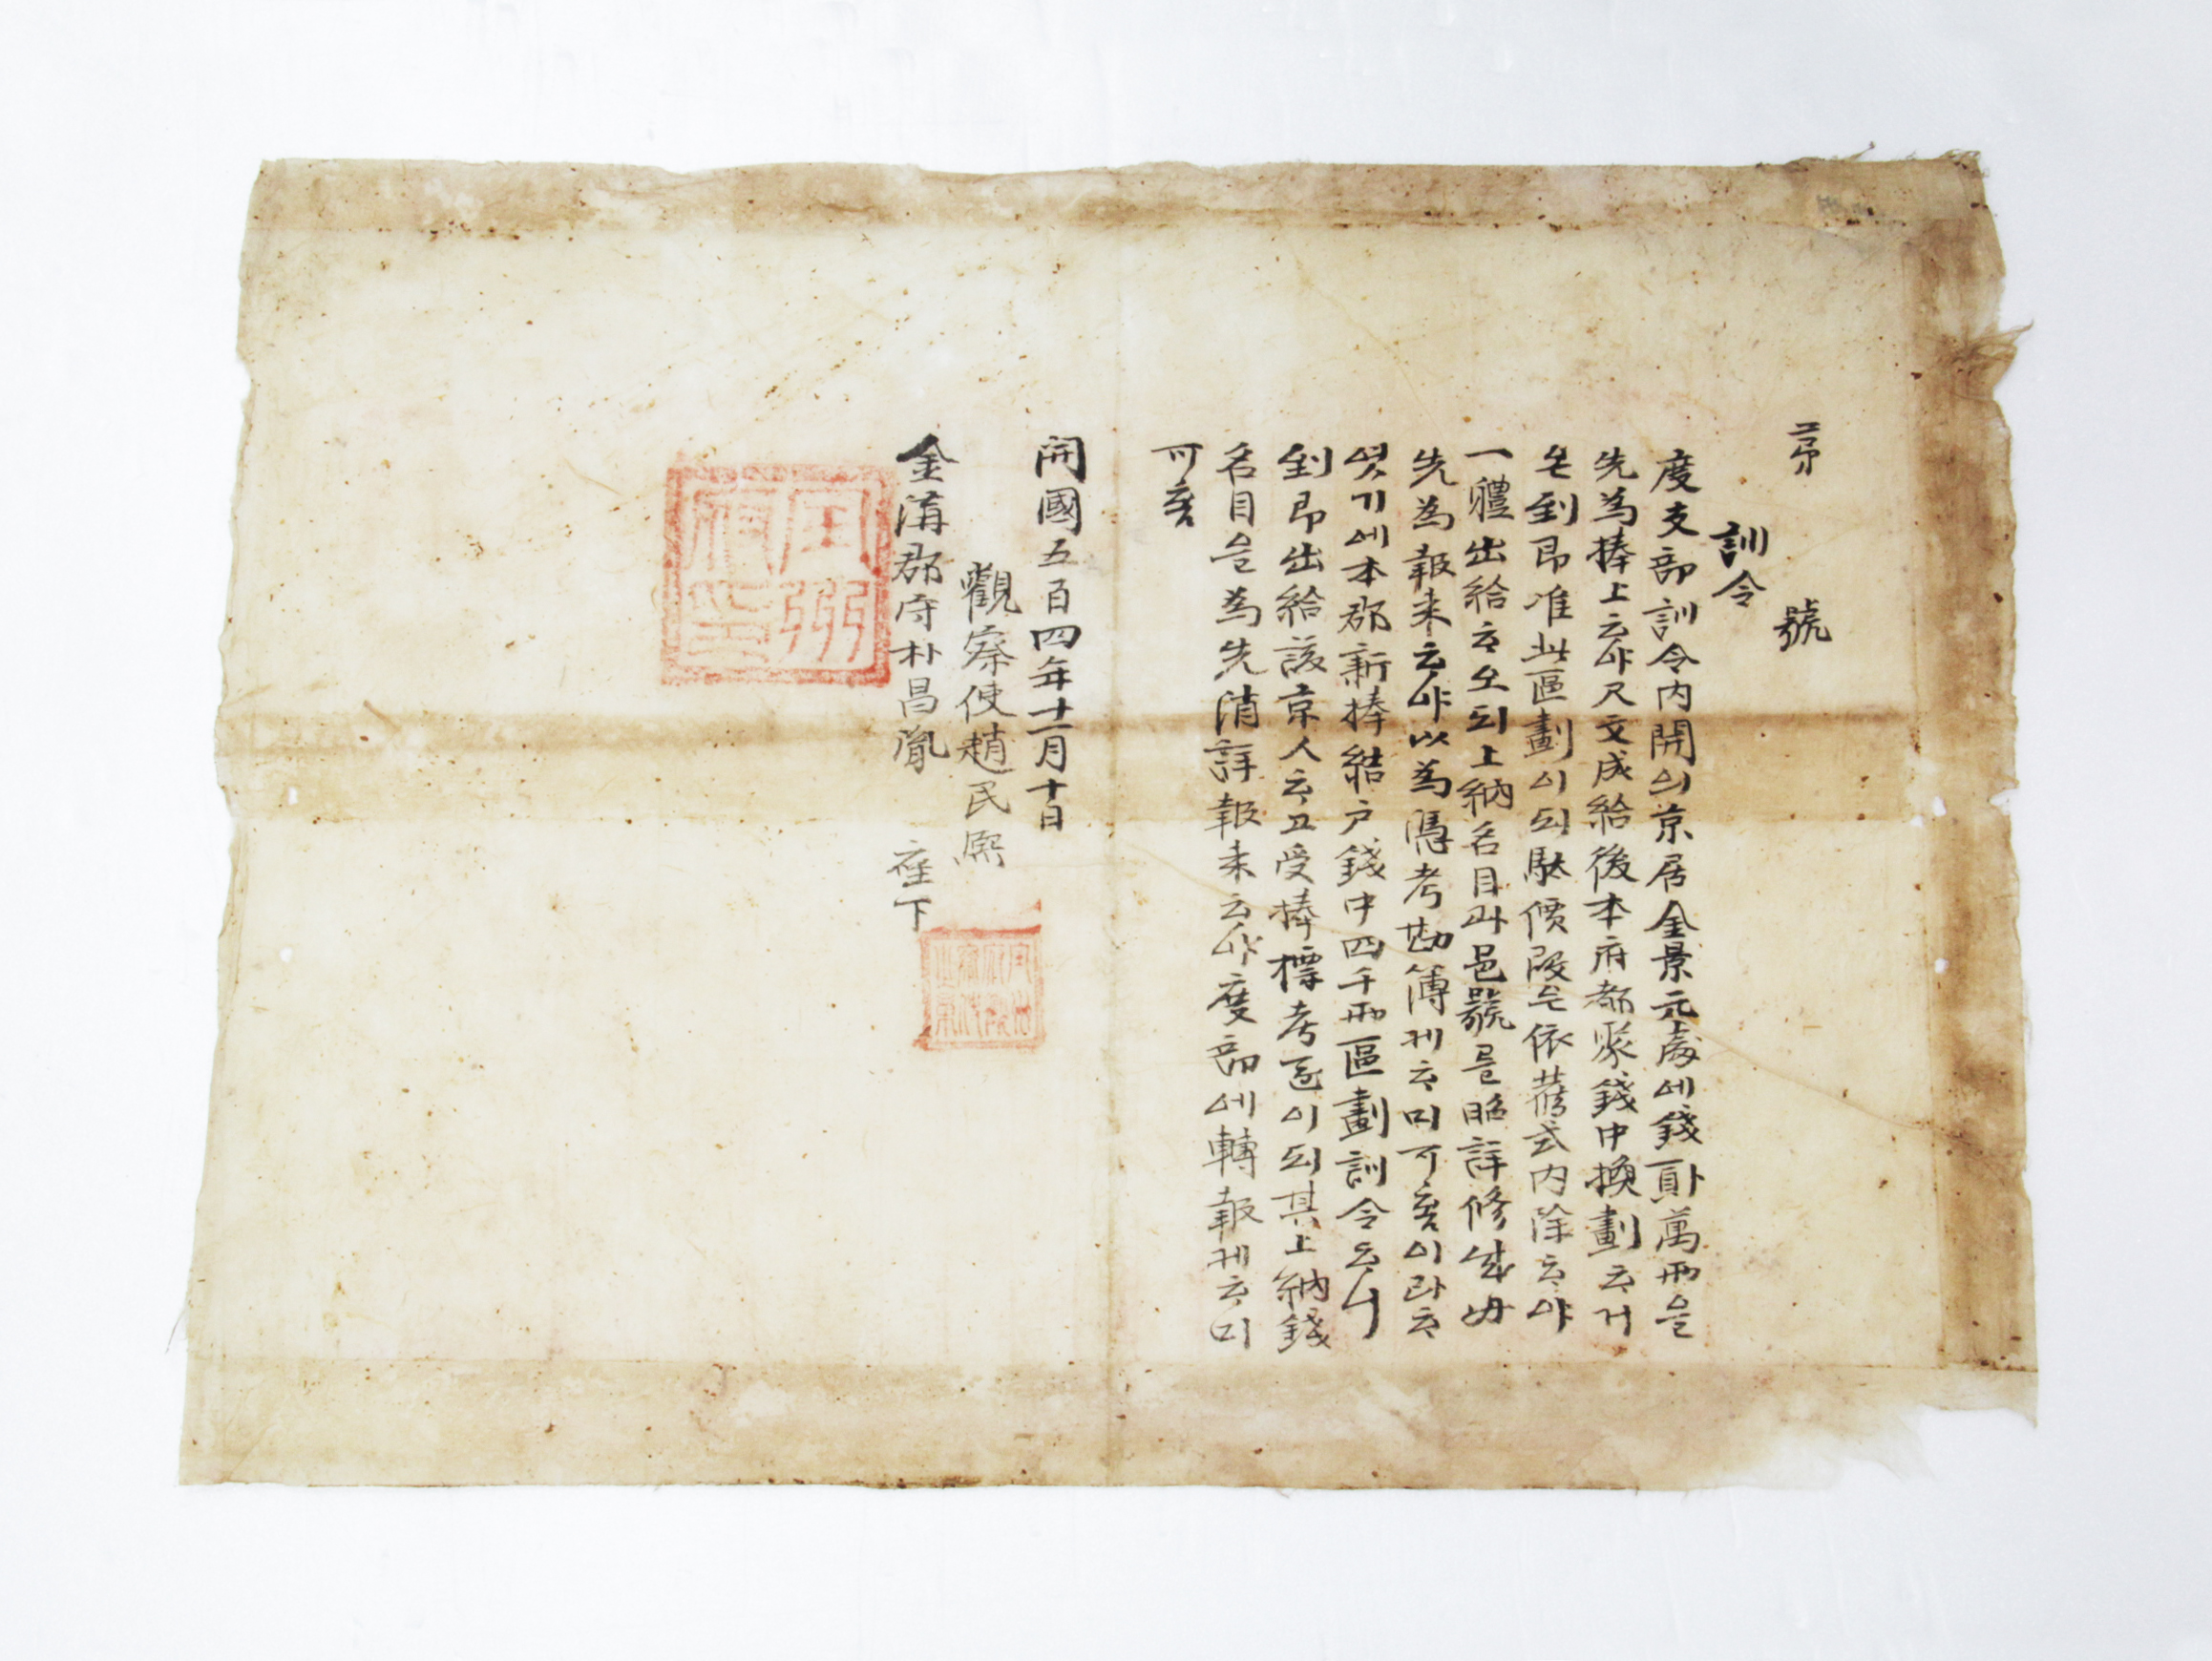 第　號
訓令
度支部訓令內開의京居金景元處에錢貳萬兩을
先爲捧上ᄒᆞ야尺文成給後本府都聚錢中換劃ᄒᆞ거
온到即准此區劃이되馱價段은依舊式內除ᄒᆞ야
一體出給ᄒᆞ오되上納名目과邑號를昭詳修成
先爲報來ᄒᆞ야以爲憑考勘簿케ᄒᆞ미可홈이라ᄒᆞ
엿기에本郡新捧結戶錢中四千兩區劃訓令ᄒᆞ니
到即出給該京人ᄒᆞ고受捧標考이되其上納錢
名目은爲先消詳報來ᄒᆞ야度部에轉報케ᄒᆞ미
可홈
開國五百四年十二月十日
觀察使趙民熙
金溝郡守朴昌胤　座下
全州府印